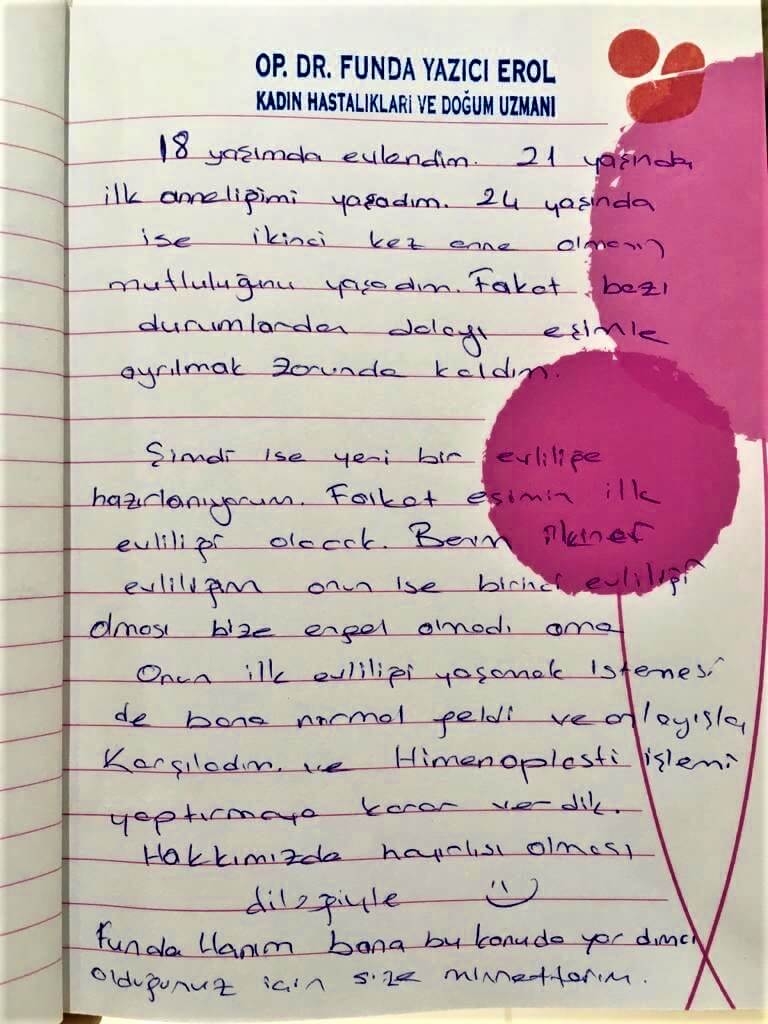 OP. DR. FUNDA YAZICI EROL
KADIN HASTALIKLARI VE DOĞUM UZMANI
18 yaşımda evlendim. 21 yaşında
ilk anneliğimi yaşadım. 24 yaşında
ise ikinci kez anne olmanın
mutluluğunu yaşadım. Fakat bazı
durumlardan dolayı eşimle
ayrılmak zorunda kaldım.
Şimdi ise yeni bir evliliğe
hazırlanıyorum. Fakat eşimin ilk
evliliği olacak. Benim ikinci
evliliğim onun ise birinci evliliği
olması bize engel olmadı ama
Onun ilk evliliği yaşamak istemesi
de bana normal geldi ve anlayışla
Karşıladım. ve Himenoplasti işlemi
yaptırmaya karar verdik.
Hakkımızda hayırlısı olması
dileğiyle
Funda Hanım bana bu konuda yardımcı
olduğunuz için size minnettarım.